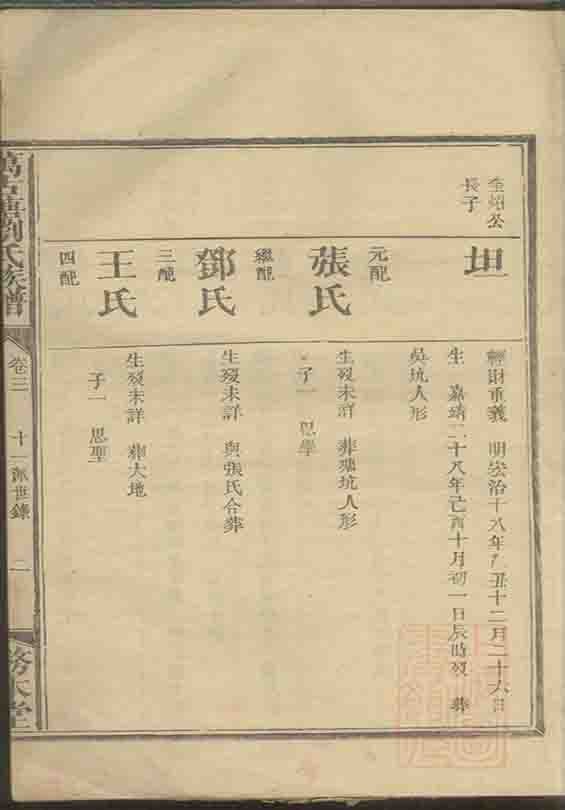 全烟公
長子
坦
輕財重義 明宏治十八年 丑十二月二十六日
生 嘉靖二十八年己酉十月初一日辰時歿 葬
吳坑人形
元配
張氏
生歿未詳 葬 坑人形
子一 思學
繼配
鄧氏
生歿未詳 與張氏合葬
三配
王氏
生歿未詳 葬大地
子一 思聖
四配
劉氏族譜
卷三 十一派世錄 二
務本堂